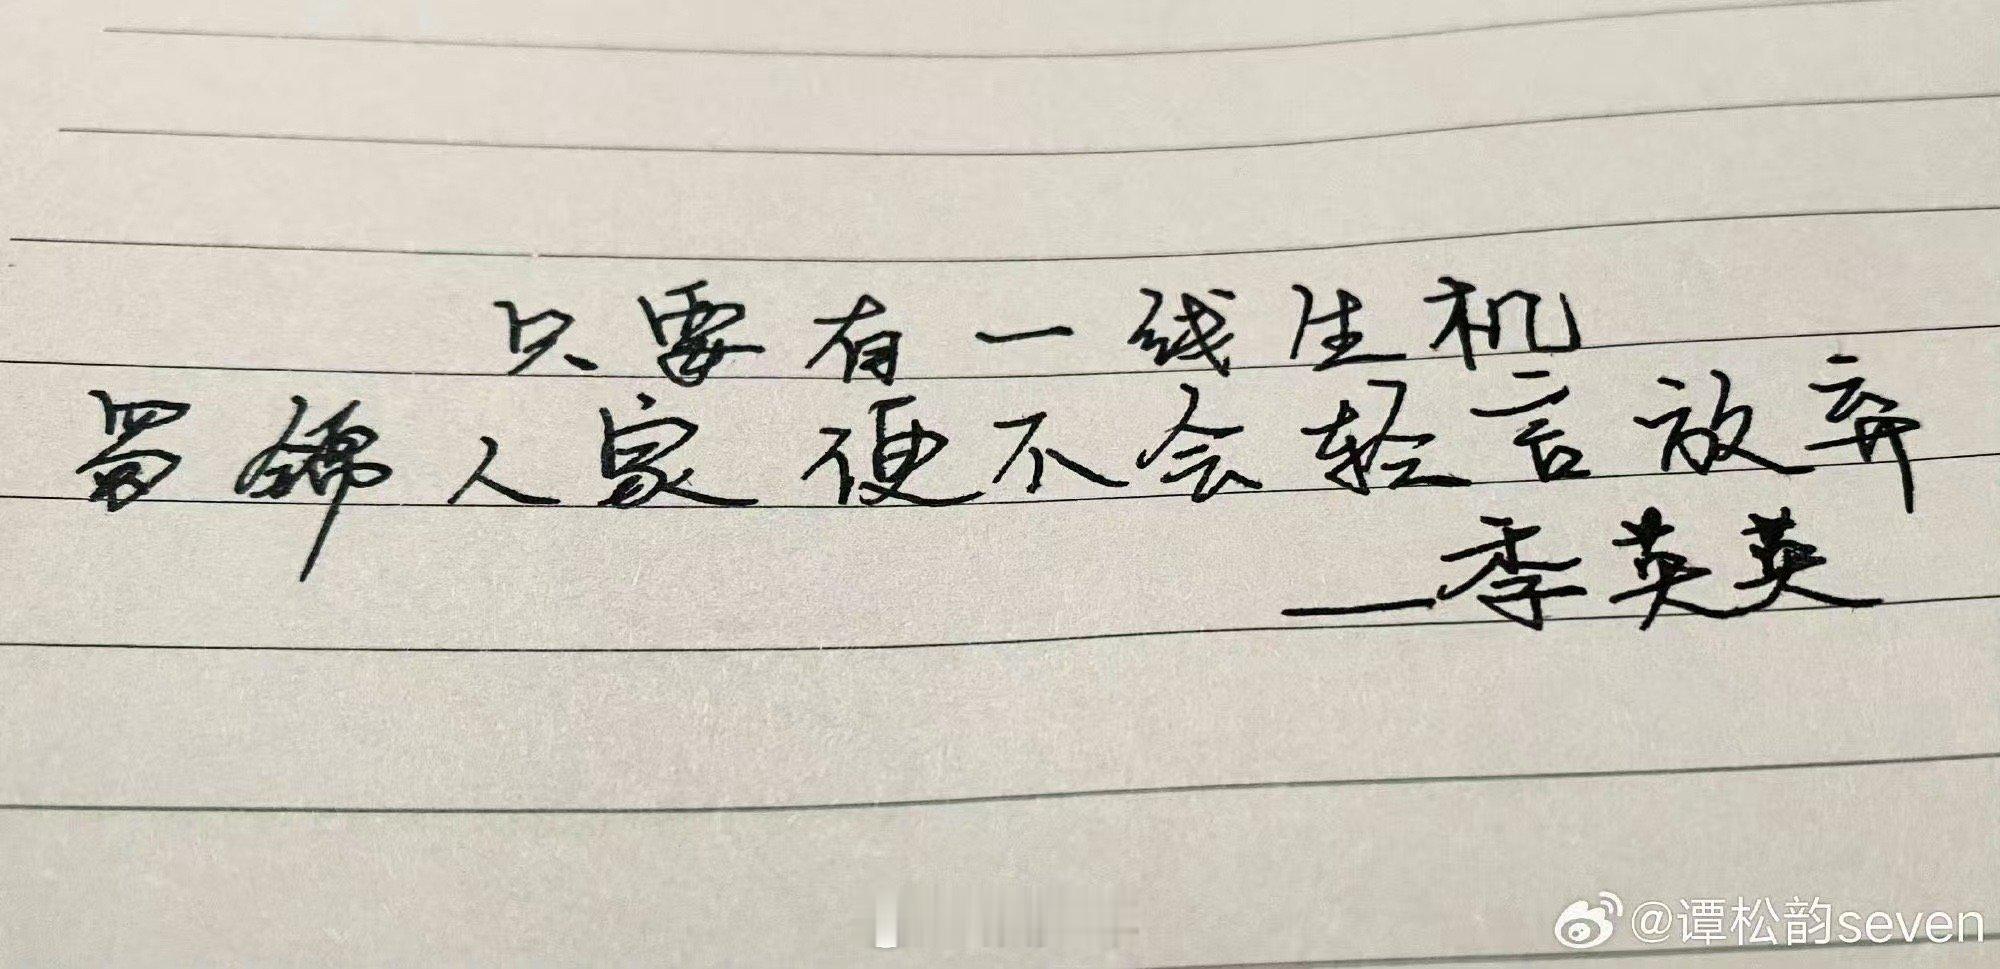 只要有一线生机
蜀锦人家便不会轻言放弃
——季英英
@谭松韵seven